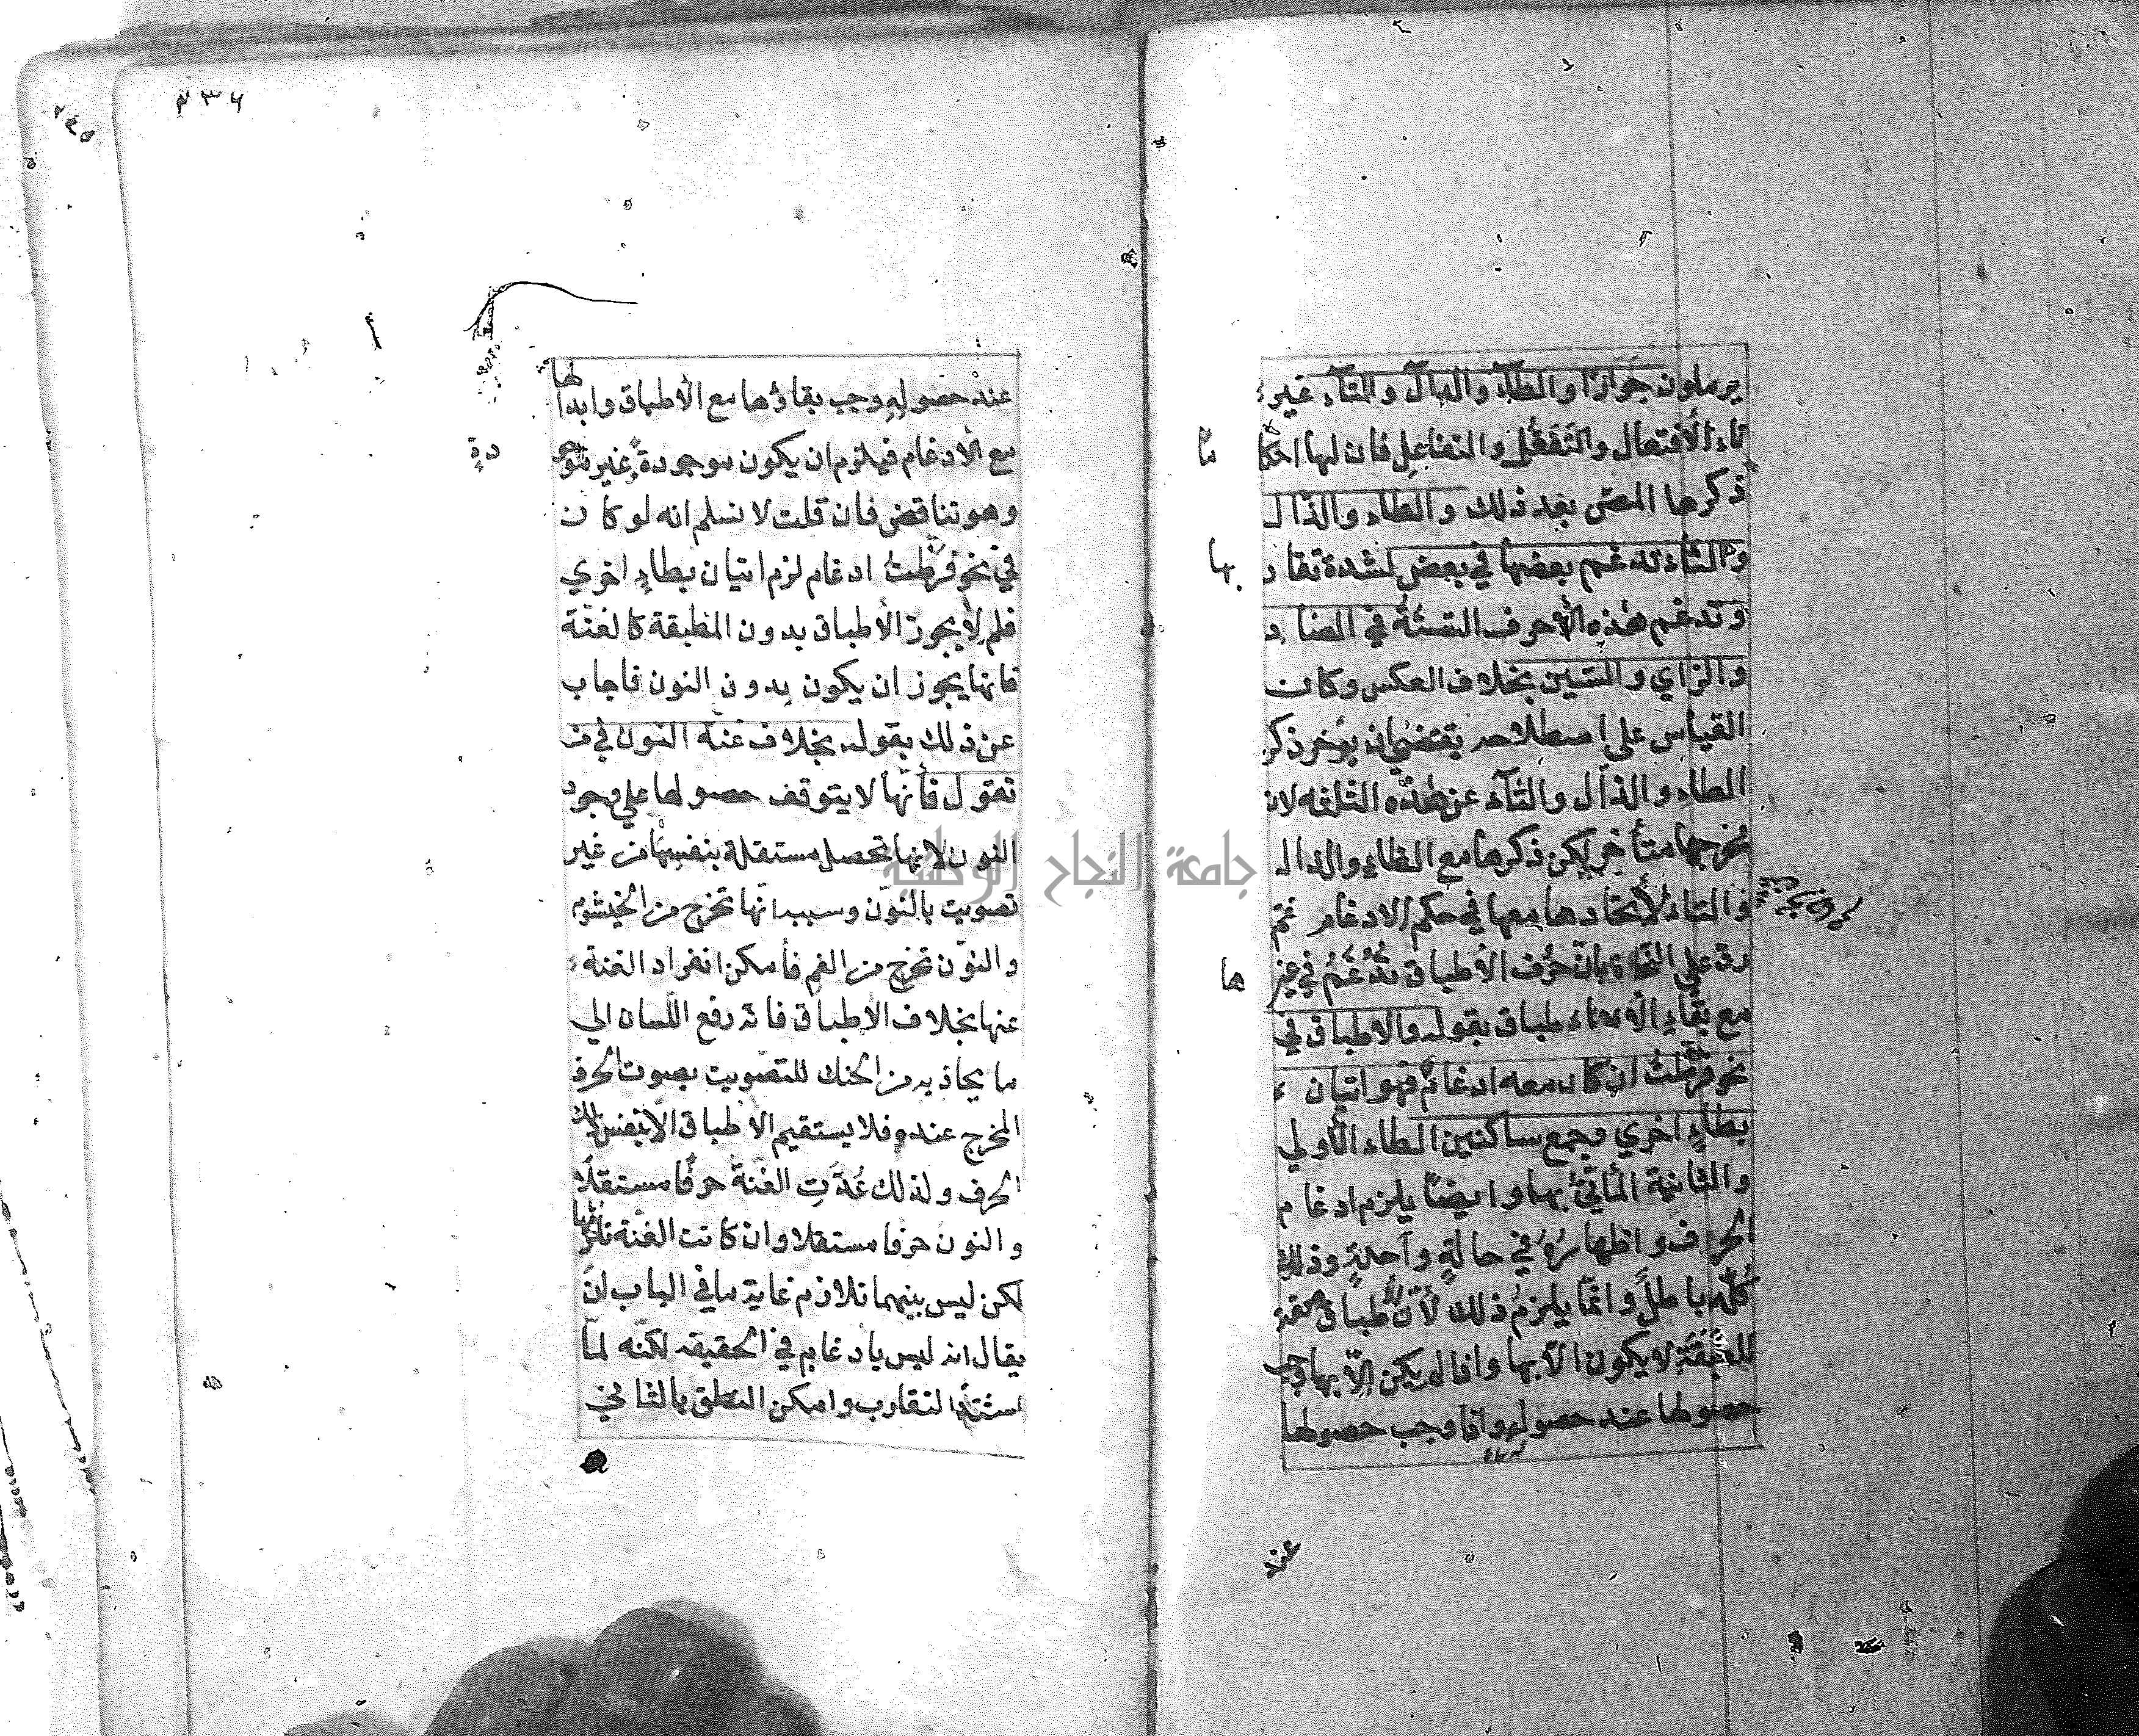 يرملون جوازا والطاء والدال والتاء غير
تاء الأفتعال والتفعل والتفاعل فان لها احكا
ما
ذكرها المص بعد ذلك والظاء والذال
والثاء تدغم بعضها في بعض لشدة تقار
بها
وتدغم هذه الأحرف الستة في الصاد
والزاي والسين بخلاف العكس وكان
القياس على اصطلاحه يقتضي ان يؤخر ذكر
الظاء والذال والثاء عن هذه الثلثة لان
مخرجها متأخر لكن ذكرها مع الطاء والدال
والتاء لأتحادها معها في حكم الادغام ثم
رد علي النحاة بان حرف الأطباق تدغم في غير
ها
مع بقاء الأطباق بقوله والاطباق في
نحو فرطت ان كان معه ادغام فهو اتيان
بطاء اخري وجمع ساكنين الطاء الأولي
والثانية المأتي بها وايضا يلزم ادغام
الحرف واظهاره في حالة واحدة وذلك
كله باطل وانما يلزم ذلك لأن الأطباق صفة
للمطبقة لا يكون الا بها واذا لم يكن الا بها وجب
حصولها عند حصوله واذا وجب حصولها
عند
٢٣٦
عند حصوله وجب بقاؤها مع الأطباق وابدالها
مع الأدغام فيلزم ان يكون موجودة غير موجو
دة
وهو تناقض فان قلت لا نسلم انه لو كان
في نحو فرطت ادغام لزم اتيان بطاء اخري
فلم لا يجوز الأطباق بدون المطبقة كالغنة
فانها يجوز ان يكون بدون النون فاجاب
عن ذلك بقوله بخلاف غنة النون في من
تقول فأنها لا يتوقف حصولها علي وجود
النون لانها تحصل مستقلة بنفسها من غير
تصويت بالنون وسببه انها تخرج من الخيشوم
والنون تخرج من الفم فأمكن انفراد الغنة
عنها بخلاف الاطباق فانه رفع اللسان الي
ما يحاذيه من الحنك للتصويت بصوت الحرف
المخرج عنده فلا يستقيم الاطباق الا بنفس ذلك
الحرف ولذلك عدت الغنة حرفا مستقلا
والنون حرفا مستقلا وان كانت الغنة تلزمها
لكن ليس بينهما تلازم غاية ما في الباب ان
يقال انه ليس بادغام في الحقيقه لكنه لما
اشتد التقارب وامكن النطق بالثاني
جامعة النجاح الوطنية